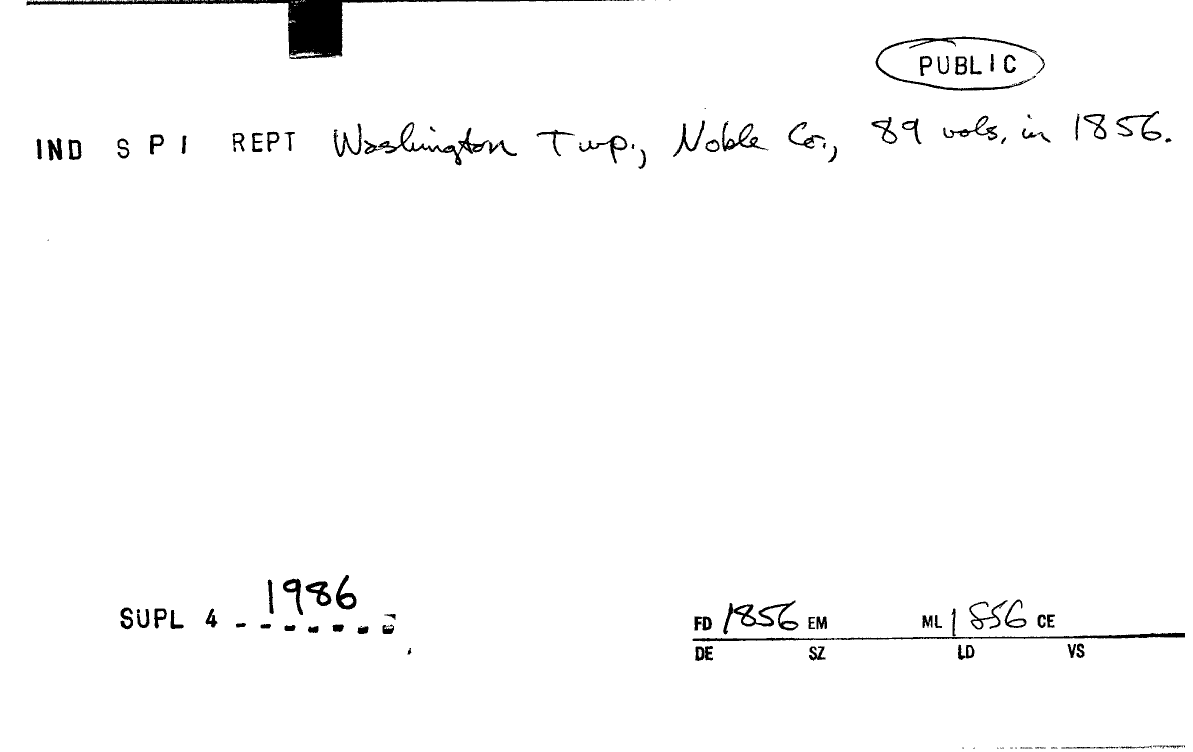 PUBLIC
IND S P I REPT Washington Twp., Noble Co., 89 vols, in 1856.
1986
SUPL 4 - - - - - - -
FD 1856 EM ML 1856 CE
DE SZ LD VS